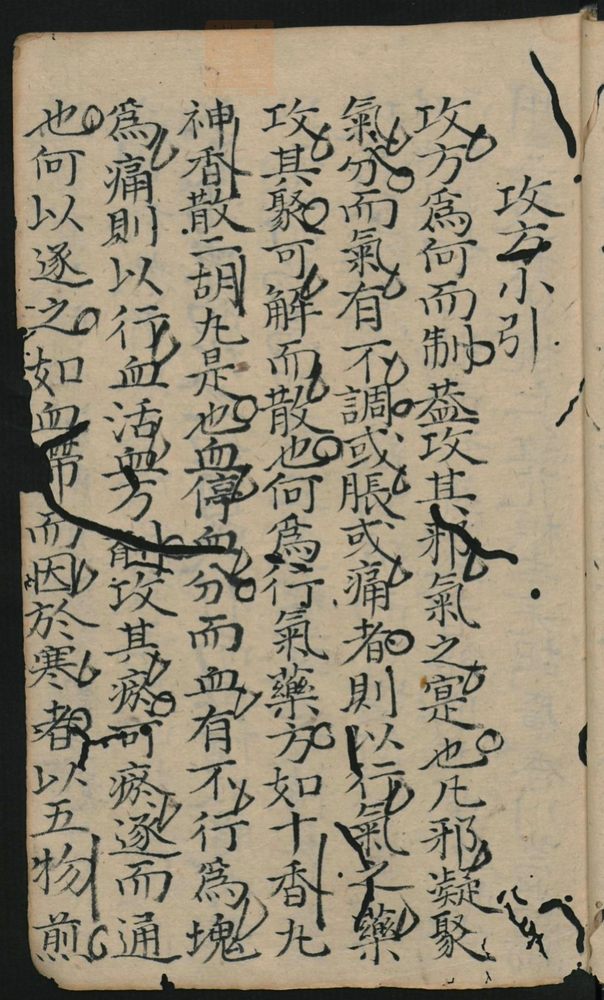 攻方小引
攻方爲何而制盖攻其邪氣之寔也凡邪凝聚
氣分而氣有不調或脹或痛者則以行氣之藥
攻其聚可解而散也何爲行氣藥方如十香丸
神香散二胡丸是也血停血分而血有不行爲塊
爲痛則以行血活血方劑攻其瘀可瘀逐而通
也何以逐之如血帶而因於寒者以五物煎